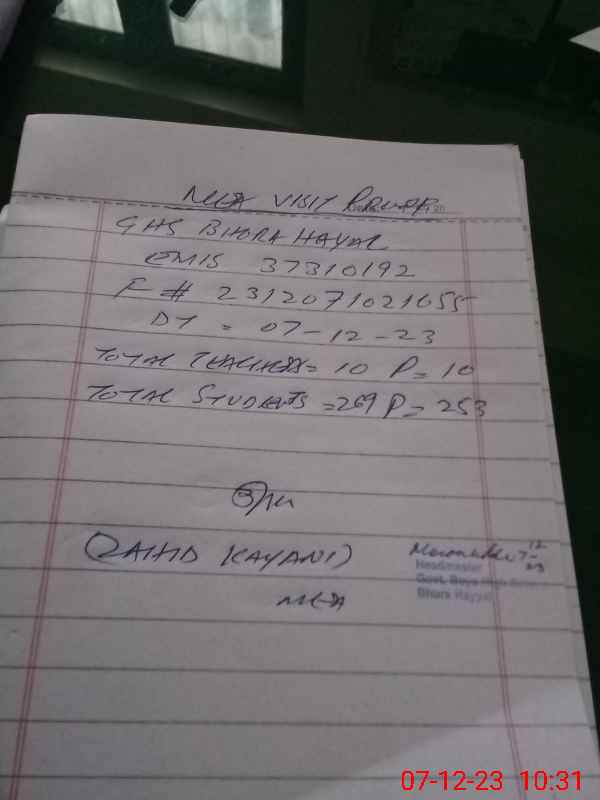 MEA VISIT PROFORMA
GHS BHORA HAYAL
EMIS 37310192
F # 2312071021055
DT = 07-12-23
TOTAL TEACHERS = 10 P = 10
TOTAL STUDENTS = 269 P = 253
(ZAHID KAYANI)
MEA
7-12-23
Headmaster
Govt. Boys High
Bhora Hayyal
07-12-23 10:31